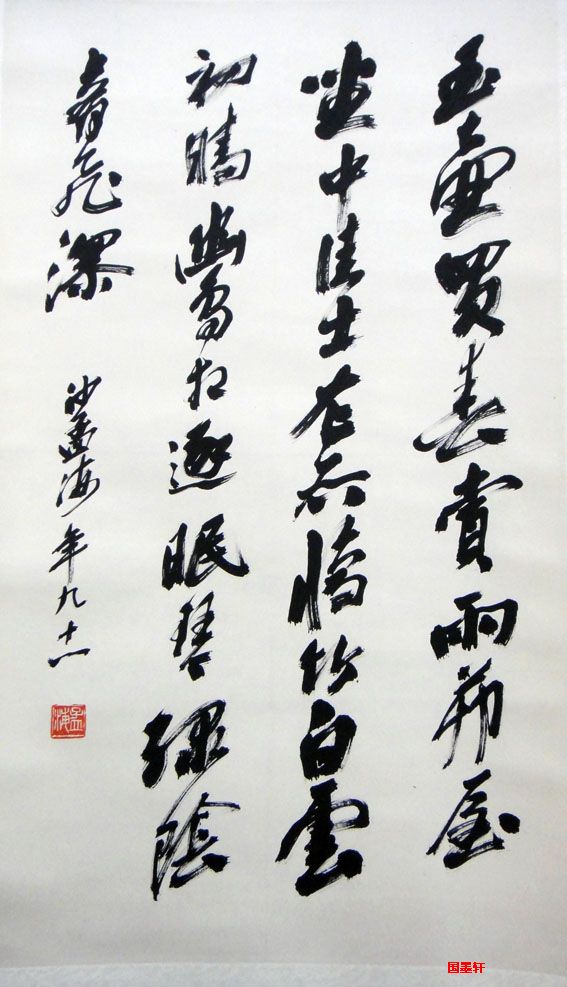 玉壺買春賞雨茆屋
坐中佳士左右脩竹白雲
初晴幽鳥相逐眠琴綠陰
上有飛瀑
沙孟海年九十一
孟海
国墨轩